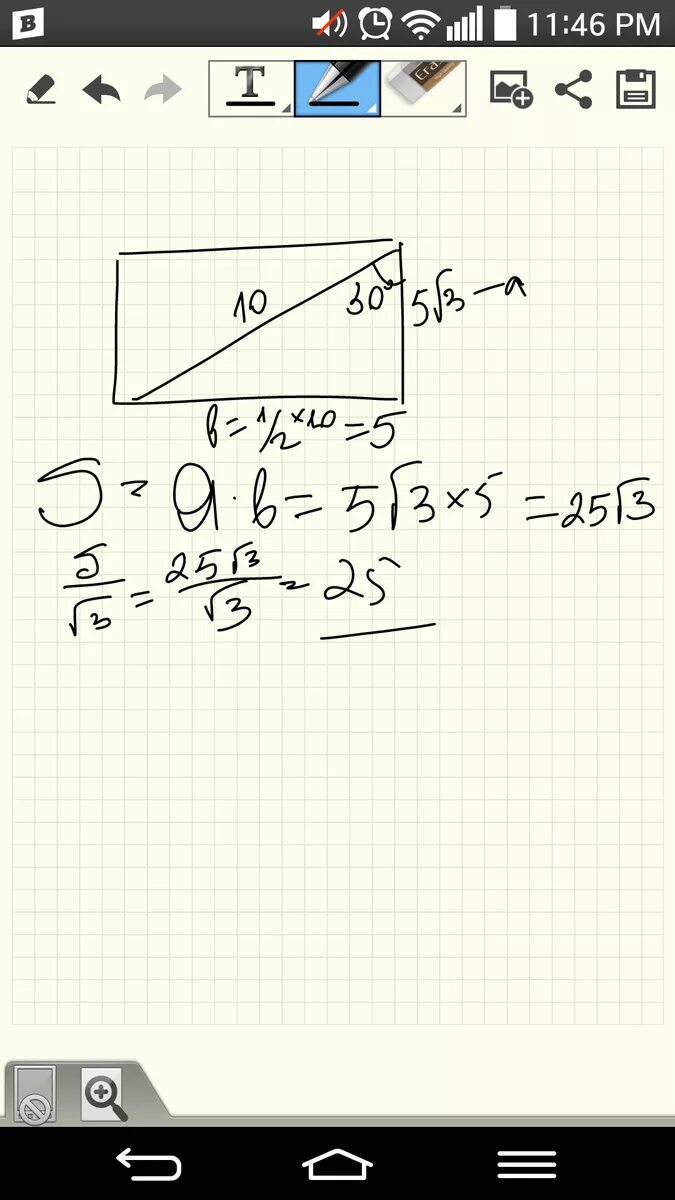 B 11:46 PM
T Eras
10 30° 5√3 — a
b = 1/2 × 10 = 5
S = a · b = 5√3 × 5 = 25√3
S/√3 = 25√3/√3 = 25